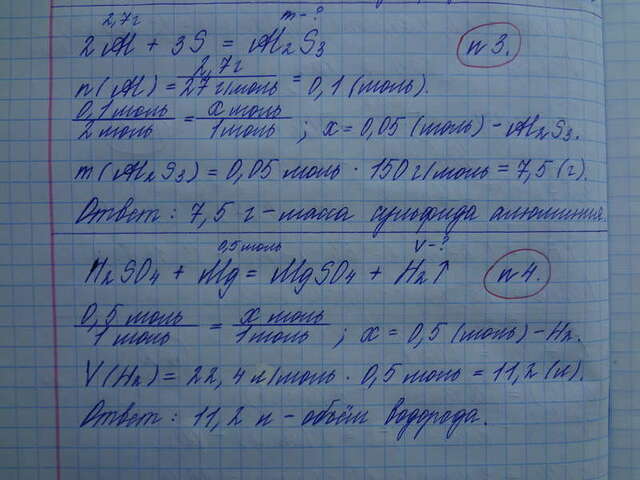 2,7г m-?
2Al + 3S = Al2S3 n3.
n(Al) = 2,7г / 27 г/моль = 0,1 (моль).
0,1 моль / 2 моль = x моль / 1 моль ; x = 0,05 (моль) - Al2S3.
m(Al2S3) = 0,05 моль · 150 г/моль = 7,5 (г).
Ответ: 7,5 г - масса сульфида алюминия.
0,5 моль V-?
H2SO4 + Mg = MgSO4 + H2↑ n4.
0,5 моль / 1 моль = x моль / 1 моль ; x = 0,5 (моль) - H2.
V(H2) = 22,4 л/моль · 0,5 моль = 11,2 (л).
Ответ: 11,2 л - объём водорода.